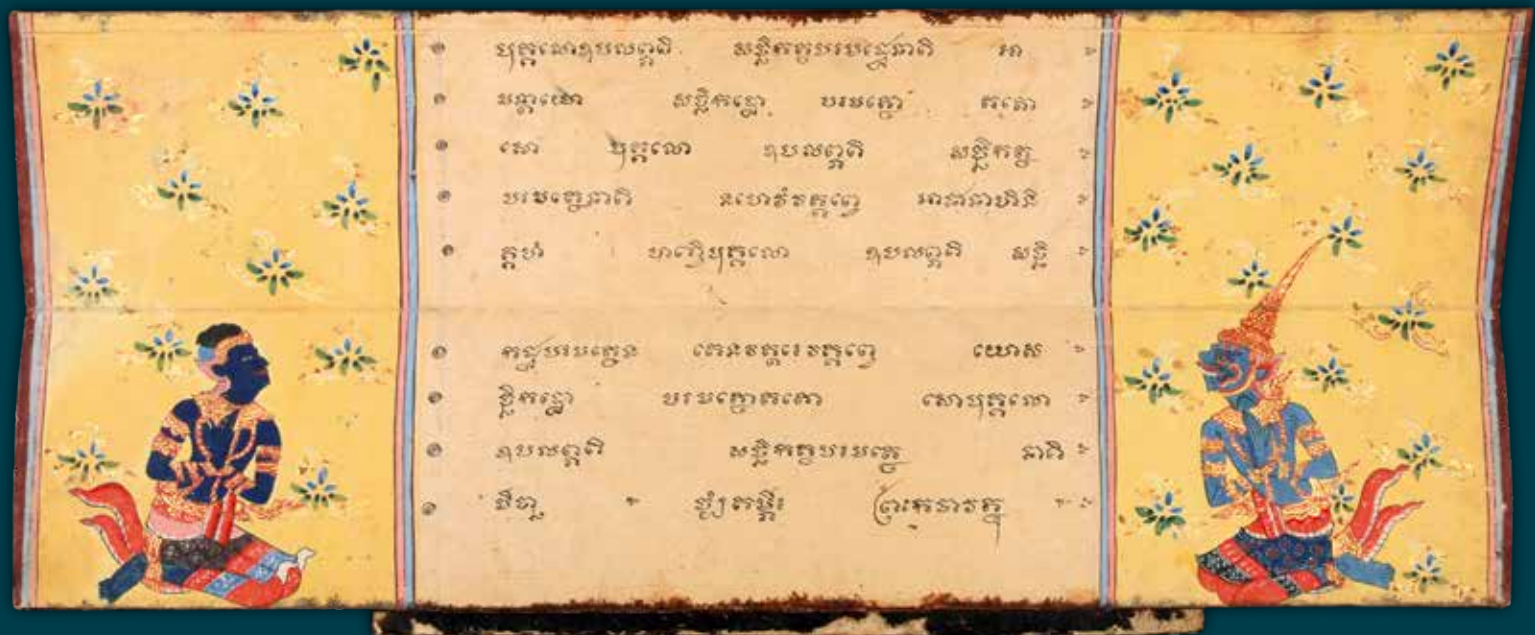 បុគ្គលោឧបលព្ភតិ សច្ឆិកត្ថបរមដ្ឋេនាតិ អា
មន្តាយោ សច្ឆិកដ្ឋោ បរមត្ថោ តតោ
សោ បុគ្គលោ ឧបលព្ភតិ សច្ឆិកត្ថ
បរមត្ថេនាតិ នហេវំវត្តព្វេ អាជានាហិនិ
គ្គហំ ហញ្ចិបុគ្គលោ ឧបលព្ភតិ សច្ឆិ
កដ្ឋបរមត្ថេន តេនវតរេវត្តព្វេ យោស
ច្ឆិកដ្ឋោ បរមត្ថោតតោ សោបុគ្គលោ
ឧបលព្ភតិ សច្ឆិកត្ថបរមត្ថេ នាតិ
មិច្ឆា ព្រះកថាវត្ថុ